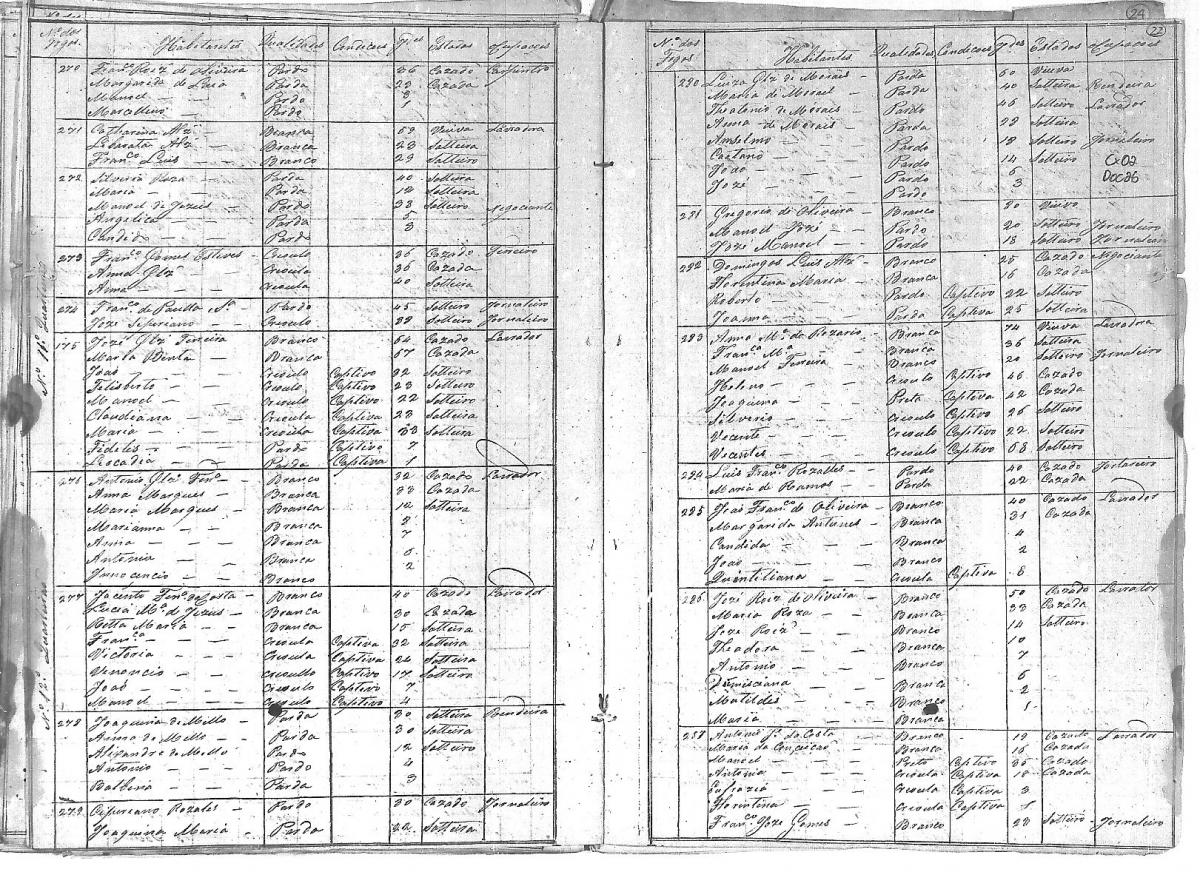 Nº dos Fogos Habitantes Qualidades Condicoes Ides Estados Ocupacoes
270 Franco Roiz de Oliveira Pardo 36 Cazado Carpintro
Margarida de Pardo 29 Cazada
Manoel — Pardo 3
Marcellino Pardo 1
271 Catharina Alz Branca 59 Viuva Lavradora
Liberata Alz — Branca 28 Solteira
Franco Luis — Branco 29 Solteiro
272 Silveria Roza — Parda 40 Solteira
Maria — Parda Solteira
Manoel de Jezus — Pardo 38 Solteiro Negociante
Angelica — Parda 5
Candido — Pardo 3
273 Franco Gomes Esteves — Creoulo 36 Cazado Ferreiro
Anna Glz — Creoula 36 Cazada
Anna — Creoula 40 Solteira
274 Franco de Paulla — Pardo 45 Solteiro Jornaleiro
Joze Sipriano — Creoulo 29 Solteiro Jornaleiro
175 Joze Glz Ferreira Branco 64 Cazado Lavrador
Maria Branca 67 Cazada
Joao — Creoulo Captivo 22 Solteiro
Felisberto — Creoulo Captivo 23 Solteiro
Manoel — Creoulo Captivo 22 Solteiro
Claudianna — Creoula Captiva 23 Solteira
Maria — Creoula Captiva 33 Solteira
Fidelis — Pardo Captivo 7
Leocadia — Parda Captiva 1
276 Antonio Glz Branco 32 Cazado Lavrador
Anna Marques — Branca 33 Cazada
Maria Marques — Branca 12 Solteira
Marianna — Branca 8
Anna — Branca 7
Antonia — Branca 6
Innocencio — Branco 2
277 Jacinto da Costa — Branco 40 Cazado Lavrador
Lucia Ma de Jezus — Branca 30 Cazada
Ritta Maria — Branca 15 Solteira
Franca — Creoula Captiva 32 Solteira
Victoria — Creoula Captiva 24 Solteira
Venancio — Creoullo Captivo 17 Solteiro
Joao — Creoulo Captivo 7
Manoel — Creoulo Captivo 4
278 Joaquina de Mello — Parda 30 Solteira
Anna de Mello — Parda 30 Solteira
Alixandre de Mello — Pardo 12 Solteiro
Antonio — Pardo 4
Balbina — Parda 3
279 Cipriano Rozales — Pardo 30 Cazado Jornaleiro
Joaquina Maria — Parda 22 Solteira
24
22
Nº dos Fogos Habitantes Qualidades Condicoes Ides Estados Ocupacoes
280 Luiza Glz de Morais — Parda 60 Viuva
Maria de Morais — Parda 40 Solteira
Theotonio de Morais — Pardo 45 Solteiro Lavrador
Anna de Morais — Parda 29 Solteira
Anselmo — Pardo 18 Solteiro Jornaleiro
Caetano — Pardo 14 Solteiro
Joao — Pardo 6
Joze — Pardo 3
Cx 02
Doc 26
281 Gregorio de Oliveira — Branco 80 Viuvo
Manoel Joze — Pardo 20 Solteiro Jornaleiro
Joze Manoel — Pardo 18 Solteiro Jornaleiro
292 Domingos Luis Alz — Branco 25 Cazado Negociante
Florentina Maria — Branca 16 Cazada
Roberto — Pardo Captivo 22 Solteiro
Joanna — Parda Captiva 25 Solteira
283 Anna Ma do Rozario — Branca 74 Viuva Lavradora
Franca Ma — Branca 36 Solteira
Manoel Ferreira — Branco 20 Solteiro Jornaleiro
Creoulo Captivo 46 Cazado
Joaquina — Preta Captiva 42 Cazada
Silverio — Creoulo Captivo 26 Solteiro
Vecente — Creoulo Captivo 22 Solteiro
Vecentes — Creoulo Captivo 68 Solteiro
284 Luis Franco Rozalles — Pardo 40 Cazado
Maria de Ramos — Parda 22 Cazada
285 Joao Franco de Oliveira — Branco 40 Cazado Lavrador
Margarida Antunes — Branca 31 Cazada
Candida — Branca 4
Joao — Branco 2
Quintiliana — Creoula Captiva 8
286 Joze Roiz de Oliveira — Branco 50 Cazado Lavrador
Maria Roza — Branca 33 Cazada
Joze Roiz — Branco 14 Solteiro
Theodora — Branca 10
Antonio — Branco 7
Branca 6
Matildes — Branca 2
Maria — Branca 1
287 Antonio da Costa — Branco 19 Cazado Lavrador
Maria da Conceicao — Branca 16 Cazada
Manoel — Preto Captivo 36 Cazado
Antonia — Creoula Captiva 18 Cazada
Eufrazia — Creoula Captiva 3
Florentina — Creoula Captiva 1
Franco Joze Gomes — Branco 23 Solteiro Jornaleiro